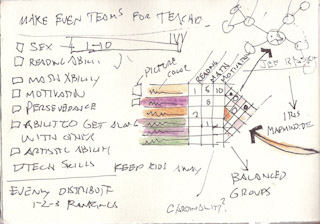 MAKE EVEN TEAMS FOR TEACHO
SEX
1-10
READING ABILITY
MATH ABILITY
MOTIVATION
PERSEVERANCE
ABILITY TO GET ALONG
WITH OTHER
ARTISTIC ABILITY
TECH SKILLS
KEEP KIDS AWAY
EVENLY DISTRIBUTE
1-2-3 RANKINGS
PICTURE
COLOR
READING
MATH
MOTIVATION
1 6 10
8
2
1
BALANCED
GROUPS